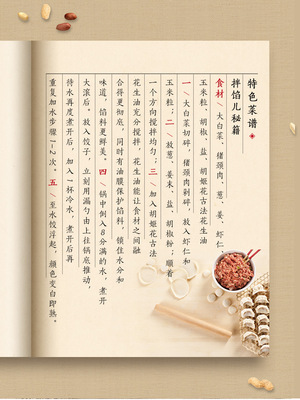 特色菜谱
拌馅儿秘籍
食材 大白菜、猪颈肉、葱、姜、虾仁、
玉米粒、胡椒、盐、胡姬花古法花生油
一 大白菜切碎，猪颈肉剁碎，放入虾仁和
玉米粒；二 放葱、姜末、盐、胡椒粉；顺着
一个方向搅拌均匀；三 加入胡姬花古法
花生油充分搅拌，花生油能让食材之间融
合得更彻底，同时有油膜保护馅料，锁住水分和
味道，馅料更鲜美。四 锅中倒入8分满的水，煮开
大滚后，放入饺子，立刻用漏勺由上往锅底推动，
待水再度煮开后，加入一杯冷水，煮开后再
重复加水步骤1-2次。五 至水饺浮起，颜色变白即熟。